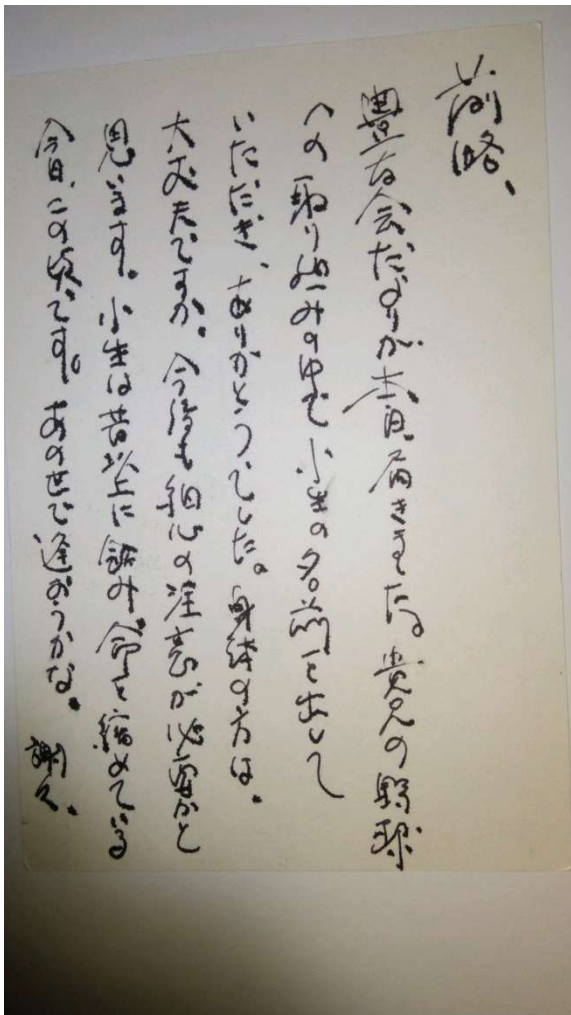 前略、
豊友会だよりが本日届きました。貴兄の野球
への取り組みの中で小生の名前を出して
いただき、ありがとうでした。身体の方は、
大丈夫ですか。今後も細心の注意が必要かと
思います。小生は昔以上に飲み、命を縮めている
今日、この頃です。あの世で逢おうかな。